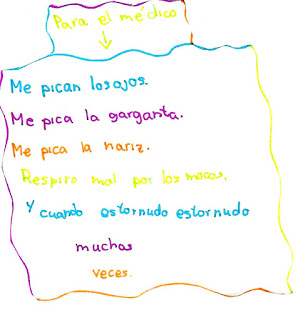 Para el médico
Me pican los ojos.
Me pica la garganta.
Me pica la nariz.
Respiro mal por los mocos.
Y cuando estornudo estornudo
muchas
veces.